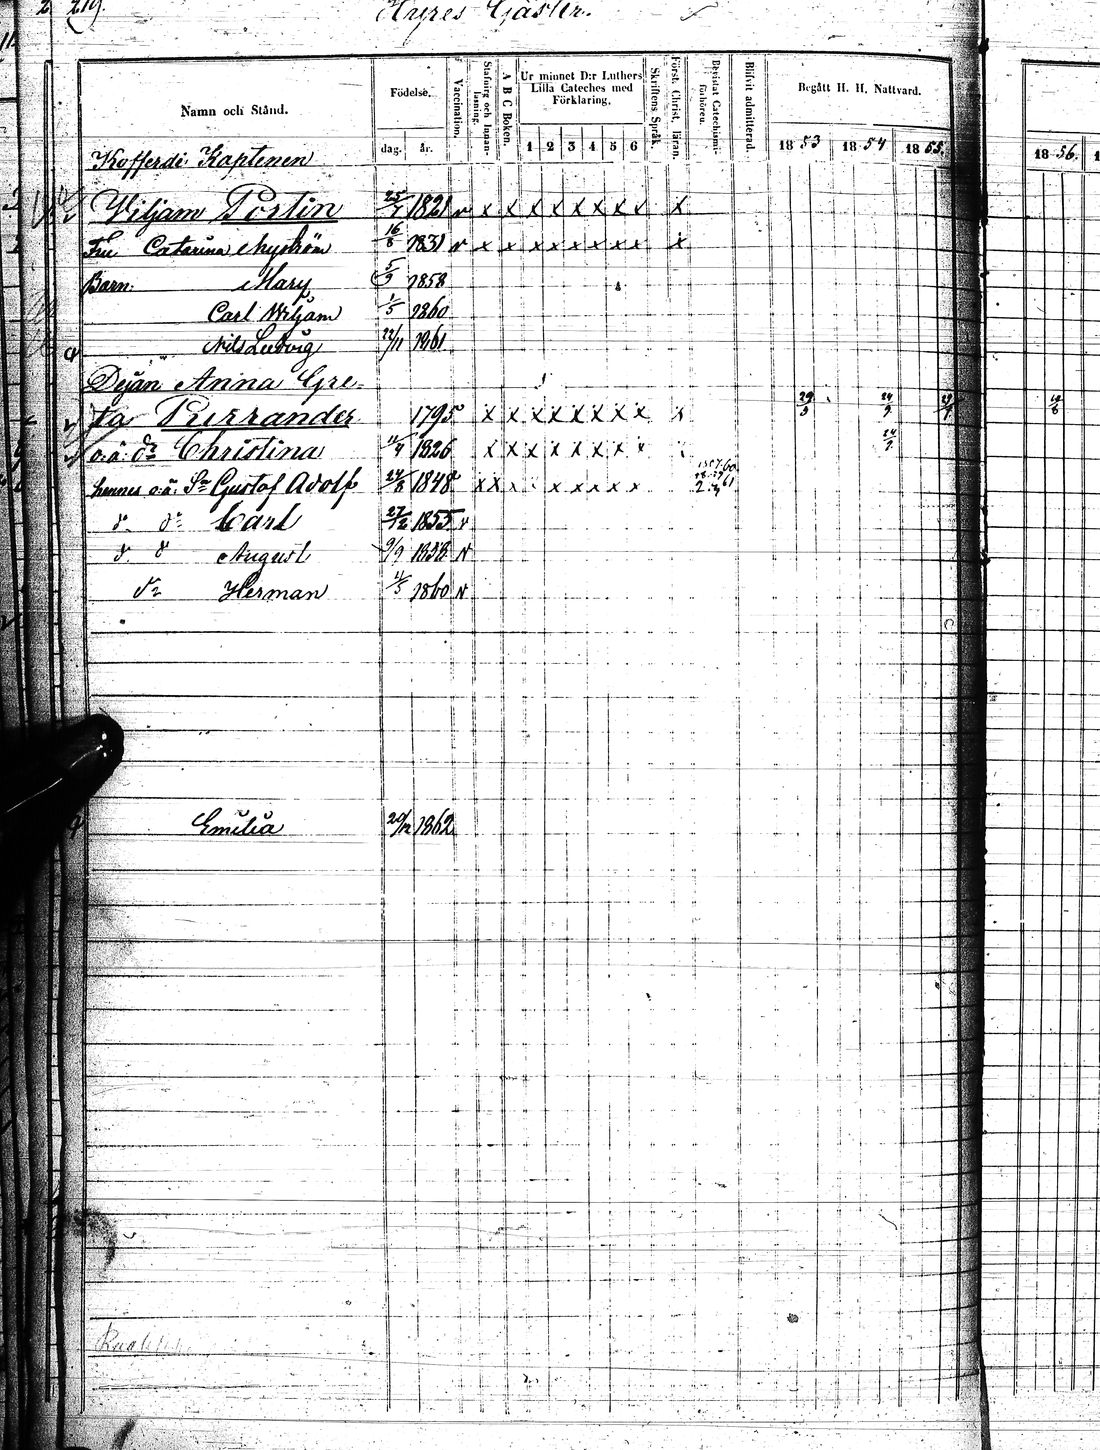 219.
Hyres Gäster.
Namn och Stånd.
Födelse.
dag. år.
Vaccination.
Stafning och Innanläsning.
A B C Boken.
Ur minnet D:r Luthers Lilla Cateches med Förklaring.
1 2 3 4 5 6
Skriftens Språk.
Först. Christ. läran.
Bevistat Catechismiförhören.
Blifvit admitterad.
Begått H. H. Nattvard.
1853 1854 1855.
1856.
Kofferdi Kaptenen
Viljam Portin 1821 v x x x x x x x x x
Fru Catarina Nyström 16/8 1831 v x x x x x x x x x
Barn: Mary 5/9 1858
Carl Wiljam 1/5 1860
Nils Ludvig 22/11 1861
Dejan Anna Gre-
ta Purrander 1795 x x x x x x x x x
o.ä. dr Christina 1826 x x x x x x x x
hennes o.ä. Sn Gustaf Adolf 24/8 1848
dn dn Carl 27/12 1855 v
d d August 9/9 1858 v
dn Herman 1860 v
Emilia 20/12 1862